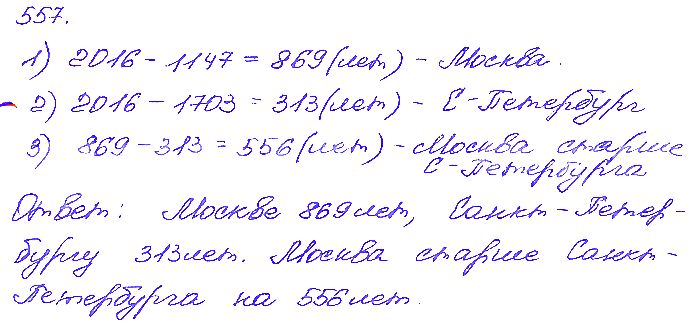 557.
1) 2016 - 1147 = 869 (лет) - Москва.
2) 2016 - 1703 = 313 (лет) - С-Петербург
3) 869 - 313 = 556 (лет) - Москва старше
С-Петербурга
Ответ: Москве 869 лет, Санкт-Петер-
бургу 313 лет. Москва старше Санкт-
Петербурга на 556 лет.